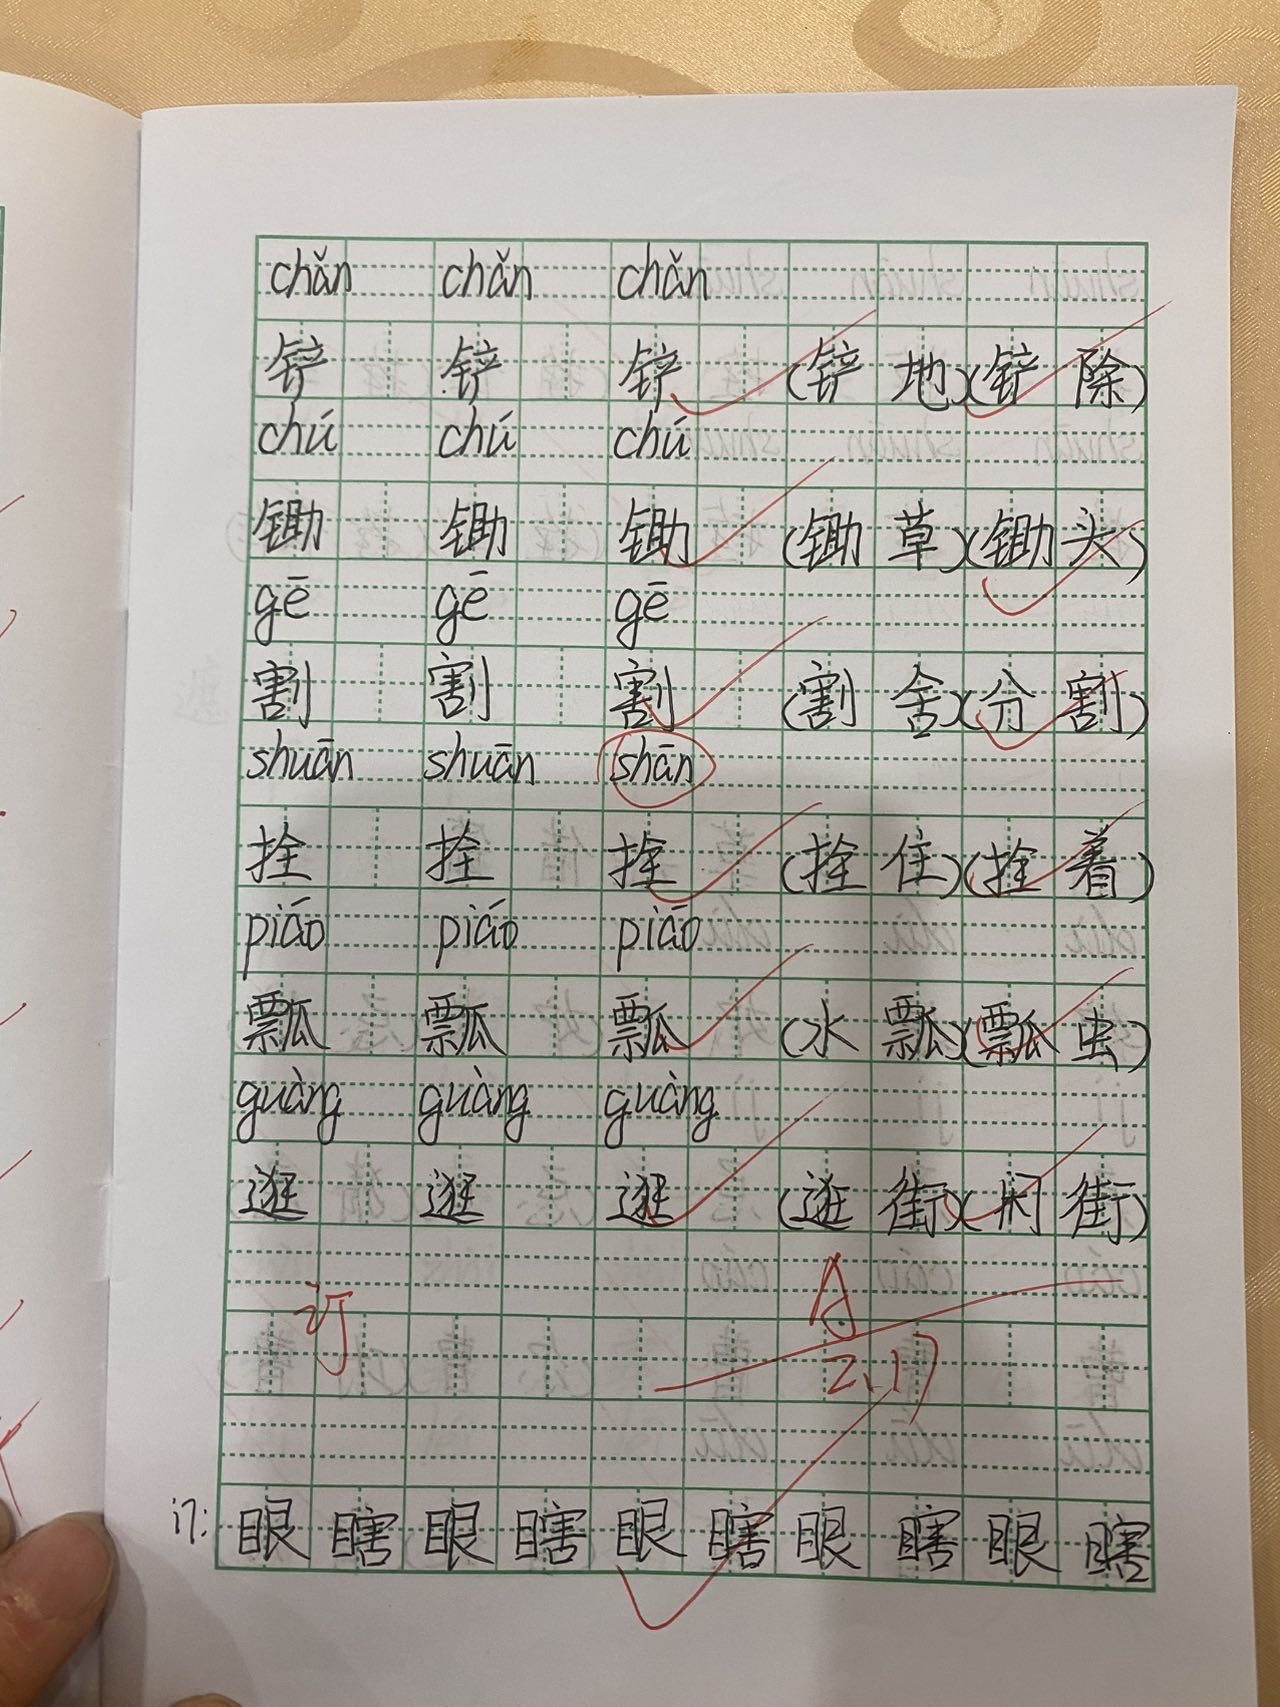 chǎn chǎn chǎn
铲 铲 铲 (铲地)(铲除)
chú chú chú
锄 锄 锄 (锄草)(锄头)
gē gē gē
割 割 割 (割舍)(分割)
shuān shuān shān
拴 拴 拴 (拴住)(拴着)
piáo piáo piáo
瓢 瓢 瓢 (水瓢)(瓢虫)
guàng guàng guàng
逛 逛 逛 (逛街)(闲街)
订 A
2.17
订: 眼瞎眼瞎眼瞎眼瞎眼瞎